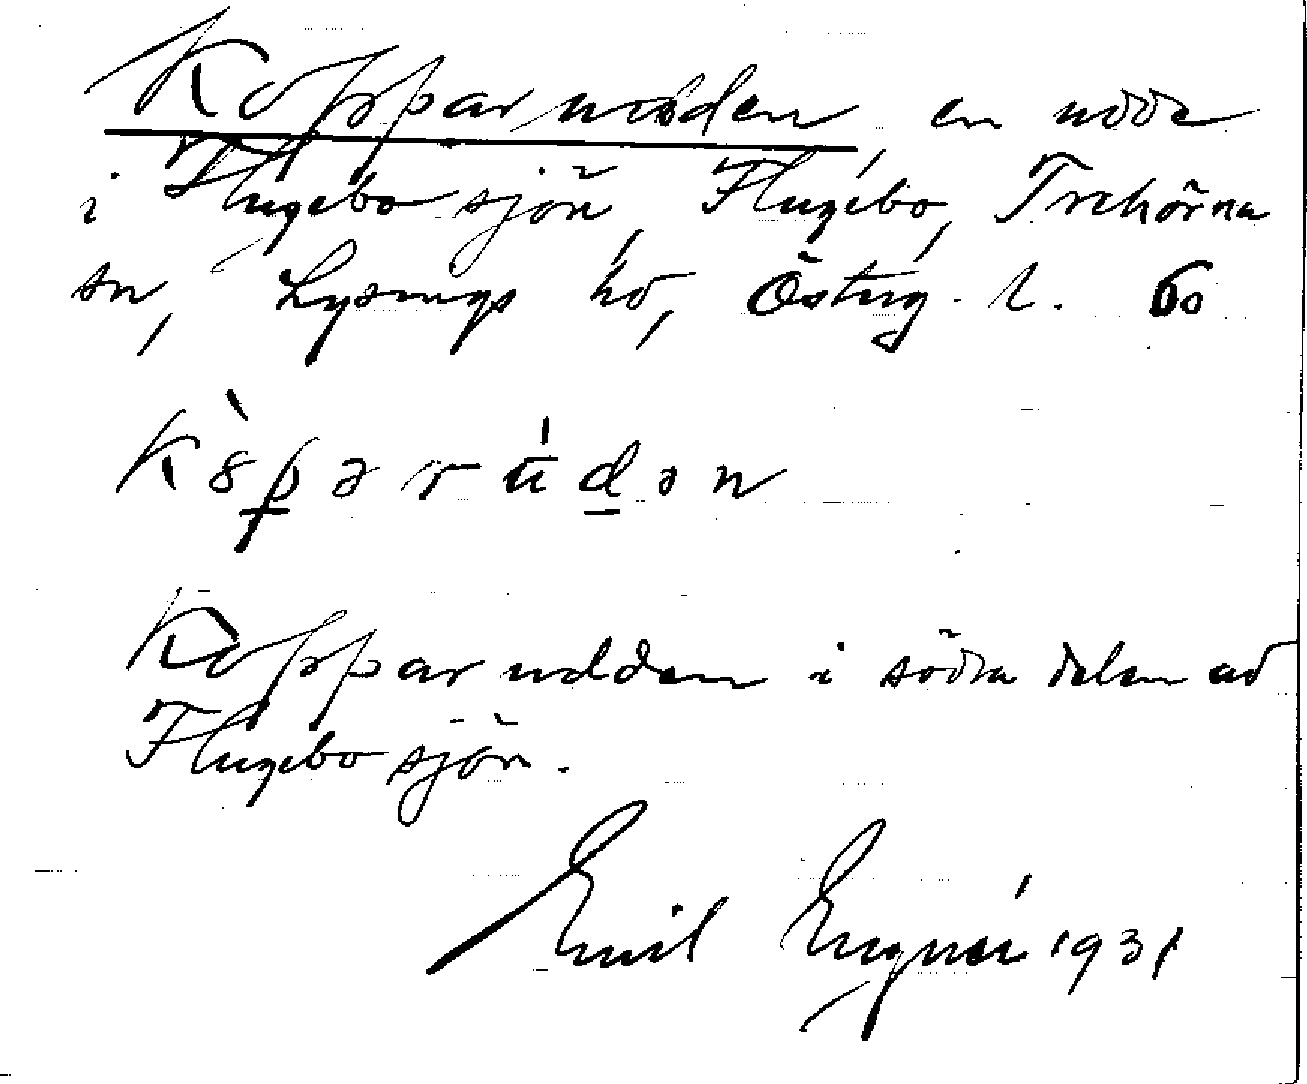 Kopparudden, en udde
i Flugebosjön, Flugebo, Trehörna
sn, Lysings hd, Östерg. l. 60
Kòpарúdәn
Kopparudden i södra delen av
Flugebosjön.
Emil Engnér 1931